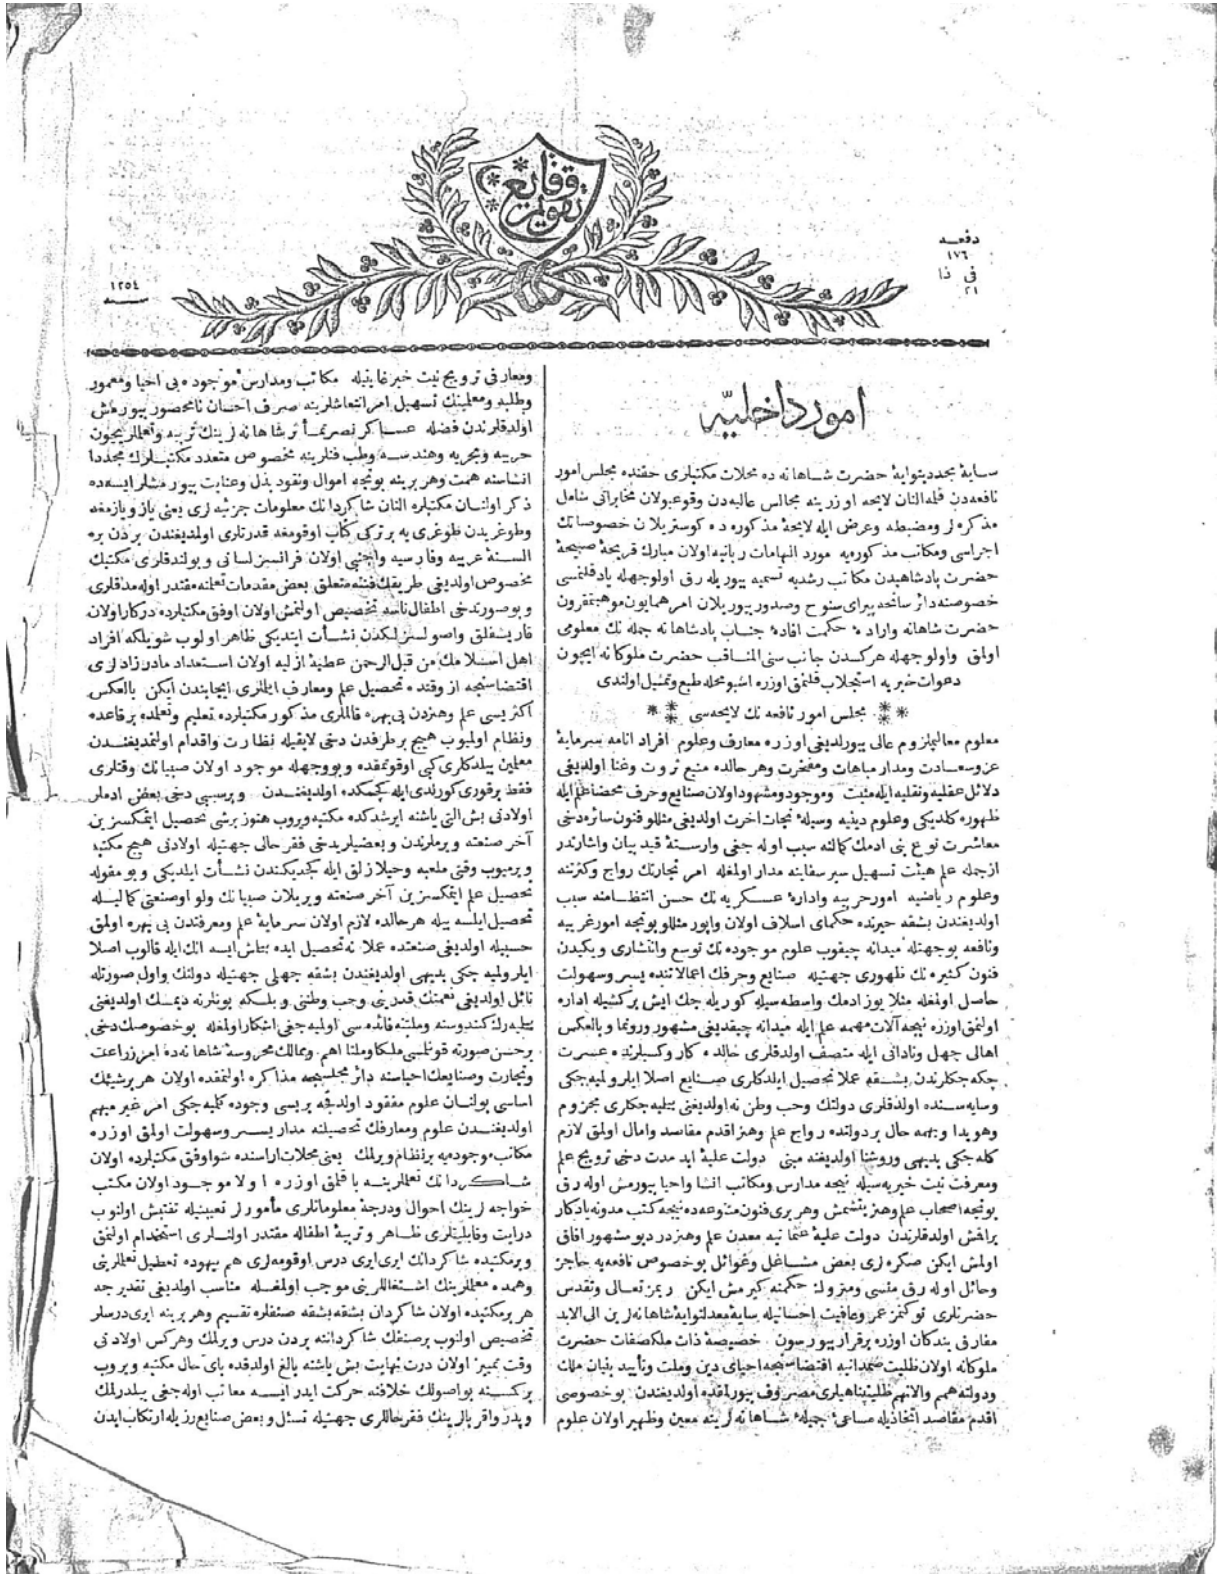 تقويم وقايع
دفعه
١٧٦
فى ذا
٢١
١٢٥٤
سنه
امور داخليه
سايۀ مجدديتوايۀ حضرت شاهانه ده محلات مكتبلرى حقنده مجلس امور
نافعه دن قلمه النان لايحه اوزرينه مجالس عاليه دن وقوعبولان مخابراتى شامل
مذكره لر ومضبطه وعرض ايله لايحۀ مذكوره ده كوستريلان خصوصاتك
اجراسى ومكاتب مذكوره يه مورد الهامات ربانيه اولان مبارك قريحۀ صبيحۀ
حضرت پادشاهيدن مكاتب رشديه تسميه بيوريله رق اولوجهله ياد قلنمسى
خصوصنه دائر سانحه پيراى سنوح وصدور بيوريلان امر همايون موهبتمقرون
حضرت شاهانه واراده حكمت افادۀ جناب پادشاهانه جمله نك معلومى
اولمق واولوجهله هركسدن جانب سنى المناقب حضرت ملوكانه ايچون
دعوات خيريه استجلاب قلنمق اوزره اشبو محله طبع وتمثيل اولندى
مجلس امور نافعه نك لايحه سى
معلوم معاليملزوم عالى بيورلديغى اوزره معارف وعلوم افراد انامه سرمايۀ
عز وسعادت ومدار مباهات ومفخرت وهر حالده منبع ثروت وغنا اولديغى
دلائل عقليه ونقليه ايله مثبت وموجود ومشهود اولان صنايع وحرف محضا علم ايله
ظهوره كلديكى وعلوم دينيه وسيلۀ نجات اخرت اولديغى مثللو فنون سائره دخى
معاشرت نوع بنى ادمك كمالنه سبب اوله جغى وارستۀ قيد بيان واشاتدر
ازجمله علم هيئت تسهيل سير سفاينه مدار اولمغله امر تجارتك رواج وكثرتنه
وعلوم رياضيه امور حربيه وادارۀ عسكريه نك حسن انتظامنه سبب
اولديغندن بشقه حيرتده حكماى اسلاف اولان واپور مثللو بونجه امور غريبه
ونافعه بوجهتله ميدانه چيقوب علوم موجوده نك توسع وانتشارى ويكيدن
فنون كثيره نك ظهورى جهتيله صنايع وحرفك اعمالاتنده يسر وسهولت
حاصل اولمغله مثلا يوز ادمك واسطه سيله كوريله جك ايش بر كشيله اداره
اولنمق اوزره نيجه آلات مهمه علم ايله ميدانه چيقديغى مشهور ورونما وبالعكس
اهالى جهل ونادانى ايله متصف اولدقلرى حالده كار وكسبلرنده عسرت
چكه جكلرندن بشقه عملا تحصيل ايلدكلرى صنايع اصلا ايلروليه جكى
وسايه سنده اولدقلرى دولتك وحب وطن نه اولديغنى بيلميه جكلرى مجزوم
وهويدا وبهمه حال بر دولتده رواج علم وهنر اقدم مقاصد وامال اولمق لازم
كله جكى بديهى وروشنا اولديغنه مبنى دولت عليۀ ابد مدت دخى ترويج علم
ومعرفت نيت خيريه سيله نيجه مدارس ومكاتب انشا واحيا بيورمش اوله رق
بونجه اصحاب علم وهنر يتشمش وهر برى فنون متنوعه ده نيجه كتب مدونه يادكار
براقمش اولدقلرندن دولت عليۀ عثمانيه معدن علم وهنردر ديو مشهور افاق
اولمش ايكن صكره لرى بعض مشاغل وغوائل بو خصوص نافعه يه حاجز
وحائل اوله رق منسى ومتروك حكمنه كيرمش ايكن ربمز تعالى وتقدس
حضرتلرى توكنمز عمر وعافيت احسانيله سايۀ معدلتوايۀ شاهانه لرين الى الابد
مفارق بندكان اوزره برقرار بيورسون خصيصۀ ذات ملكصفات حضرت
ملوكانه اولان ظليت صمدانيه اقتضا سنجه احياى دين وملت وتأييد بنيان ملك
ودولته همم والانهم ظليتپناهيلرى مصروف بيورلمقده اولديغندن بو خصوصى
اقدم مقاصد اتخاذيله مساعئ جميلۀ شاهانه لرينه معين وظهير اولان علوم
ومعارفى ترويج نيت خير غايتيله مكاتب ومدارس موجوده يى احيا ومعمور
وطلبه ومعلمينك تسهيل امر انتعاشلرينه صرف احسان نامحصور بيورمش
اولدقلرندن فضله عساكر نصرتمأثر شاهانه لرينك تربيه وتعلملريچون
حربيه وبحريه وهندسه وطب فنلرينه مخصوص متعدد مكتبلرك مجددا
انشاسنه همت وهر برينه بونجه اموال ونقود بذل وعنايت بيورمشلر ايسه ده
ذكر اولنان مكتبلره النان شاكردانك معلومات جزئيه لرى يعنى ياز ويازمغه
وطوغريدن طوغرى يه بر تركى كتاب اوقومغه قدرتلرى اولمديغندن بردن بره
السنۀ عربيه وفارسيه واجنبى اولان فرانسز لسانى وبولندقلرى مكتبك
مخصوص اولديغى طريقك فننه متعلق بعض مقدمات تعلمنه مقتدر اوله مدقلرى
وبو صورت دخى اطفال ناسه تخصيص اولنمش اولان اوفق مكتبلرده دركار اولان
قاريشقلق واصولسزلكدن نشأت ايتديكى ظاهر اولوب شويلكه افراد
اهل اسلامك من قبل الرحمن عطيۀ ازليه اولان استعداد مادرزادلرى
اقتضاسنجه از وقتده تحصيل علم ومعارف ايتملرى ايجابندن ايكن بالعكس
اكثريسى علم وهنردن بى بهره قالملرى مذكور مكتبلرده تعليم وتعلمده بر قاعده
ونظام اولميوب هيچ بر طرفدن دخى لايقيله نظارت واقدام اولنمديغندن
معلمين بيلدكلرى كبى اوقوتمقده وبو وجهله موجود اولان صبيانك وقتلرى
فقط بر قورى كورلدى ايله كچمكده اولديغندن وبر سببى دخى بعض ادملر
اولادنى بش التى ياشنه ايرشدكده مكتبه ويروب هنوز برشى تحصيل ايتمكسزين
آخر صنعته ويرملرندن وبعضيلرى دخى فقر حالى جهتيله اولادنى هيچ مكتبه
ويرميوب وقتى ملعبه وحيلازلق ايله كچديكندن نشأت ايلديكى وبو مقوله
تحصيل علم ايتمكسزين آخر صنعته ويريلان صبيانك ولو او صنعتى كماليله
تحصيل ايلسه بيله هر حالده لازم اولان سرمايۀ علم ومعرفتدن بى بهره اولمق
حسبيله اولديغى صنعتده عملا نه تحصيل ايده بتمش ايسه انك ايله قالوب اصلا
ايلروليه جكى بديهى اولديغندن بشقه جهلى جهتيله دولتك واول صورتله
نائل اولديغى نعمتك قدرينى وحب وطنى وبلكه بونلر نه ديمك اولديغنى
بيلميه رك كندوسنه وملتنه فائده سى اولميه جغى اشكار اولمغله بو خصوصك دخى
بر حسن صورته قونلمسى ملكا وملتا اهم وممالك محروسۀ شاهانه ده امر زراعت
وتجارت وصنايعك احياسنه دائر مجلسجه مذاكره اولنمقده اولان هر شيئك
اساسى بولنان علوم مفقود اولدقجه بريسى وجوده كلميه جكى امر غير مبهم
اولديغندن علوم ومعارفك تحصيلنه مدار يسر وسهولت اولمق اوزره
مكاتب موجوده يه بر نظام ويرلمك يعنى محلات اراسنده شو اوفق مكتبلرده اولان
شاكردانك تعلملرينه باقلمق اوزره اولا موجود اولان مكتب
خواجه لرينك احوال ودرجۀ معلوماتلرى مأمورلر تعيينيله تفتيش اولنوب
درايت وقابليتلرى ظاهر وتربيۀ اطفاله مقتدر اولنلرى استخدام اولنمق
وبر مكتبده شاكردانك ايرى ايرى درس اوقومه لرى هم بيهوده تعطيل تعلملرينى
وهمده معلملرينك اشتغاللرينى موجب اولمغله مناسب اولديغى تقديرجه
هر بر مكتبده اولان شاكردان بشقه بشقه صنفلره تقسيم وهر برينه ايرى درسلر
تخصيص اولنوب بر صنفك شاكردانته بردن درس ويرلمك وهركس اولادنى
وقت تمييز اولان درت نهايت بش ياشنه بالغ اولدقده باى حال مكتبه ويروب
بركسنه بو اصولك خلافنه حركت ايدر ايسه معاتب اوله جغى بيلدرلمك
وپدر واقربالرينك فقر حاللرى جهتيله تسئل وبعض صنايع رزيله ارتكاب ايدن